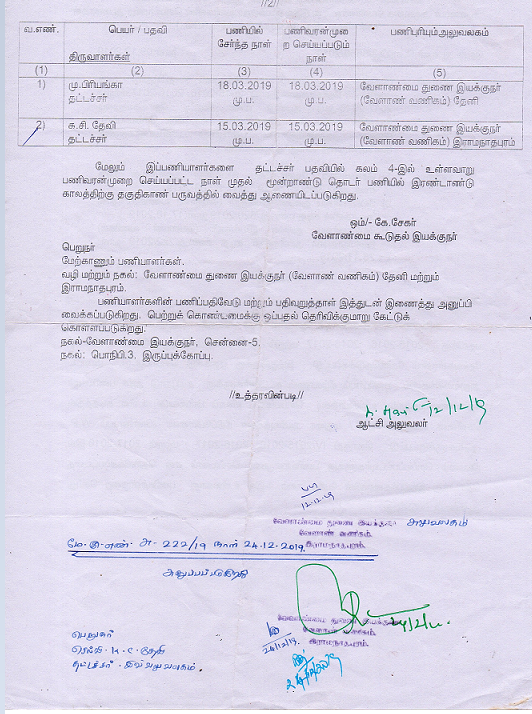 //2//
வ.எண். பெயர் / பதவி பணியில் சேர்ந்த நாள் பணிவரன்முறை செய்யப்படும் நாள் பணிபுரியும்அலுவலகம்
திருவாளர்கள்
(1) (2) (3) (4) (5)
1) மு.பிரியங்கா 18.03.2019 18.03.2019 வேளாண்மை துணை இயக்குநர்
தட்டச்சர் மு.ப. மு.ப. (வேளாண் வணிகம்) தேனி
2) க.சி. தேவி 15.03.2019 15.03.2019 வேளாண்மை துணை இயக்குநர்
தட்டச்சர் மு.ப. மு.ப. (வேளாண் வணிகம்) இராமநாதபுரம்
மேலும் இப்பணியாளர்களை தட்டச்சர் பதவியில் கலம் 4-இல் உள்ளவாறு
பணிவரன்முறை செய்யப்பட்ட நாள் முதல் மூன்றாண்டு தொடர் பணியில் இரண்டாண்டு
காலத்திற்கு தகுதிகாண் பருவத்தில் வைத்து ஆணையிடப்படுகிறது.
ஒம்/- கே.சேகர்
வேளாண்மை கூடுதல் இயக்குநர்
பெறுநர்
மேற்காணும் பணியாளர்கள்.
வழி மற்றும் நகல்: வேளாண்மை துணை இயக்குநர் (வேளாண் வணிகம்) தேனி மற்றும்
இராமநாதபுரம்.
பணியாளர்களின் பணிப்பதிவேடு மற்றும் பதிவுறுத்தாள் இத்துடன் இணைத்து அனுப்பி
வைக்கப்படுகிறது. பெற்றுக் கொண்டமைக்கு ஒப்பதல் தெரிவிக்குமாறு கேட்டுக்
கொள்ளப்படுகிறது.
நகல்-வேளாண்மை இயக்குநர், சென்னை-5.
நகல்: பொநிபி.3. இருப்புக்கோப்பு.
//உத்தரவின்படி//
12/12/19
ஆட்சி அலுவலர்
12.12.19
வேளாண்மை துணை இயக்குநர் அலுவலகம்
வேளாண் வணிகம்.
இராமநாதபுரம்.
222/19 நாள் 24.12.2019.
அனுப்பப்படுகிறது
வேளாண்மை துணை இயக்குநர்
வேளாண் வணிகம்,
இராமநாதபுரம்.
24/12/19
பெறுநர்
தேவி
தட்டச்சர்